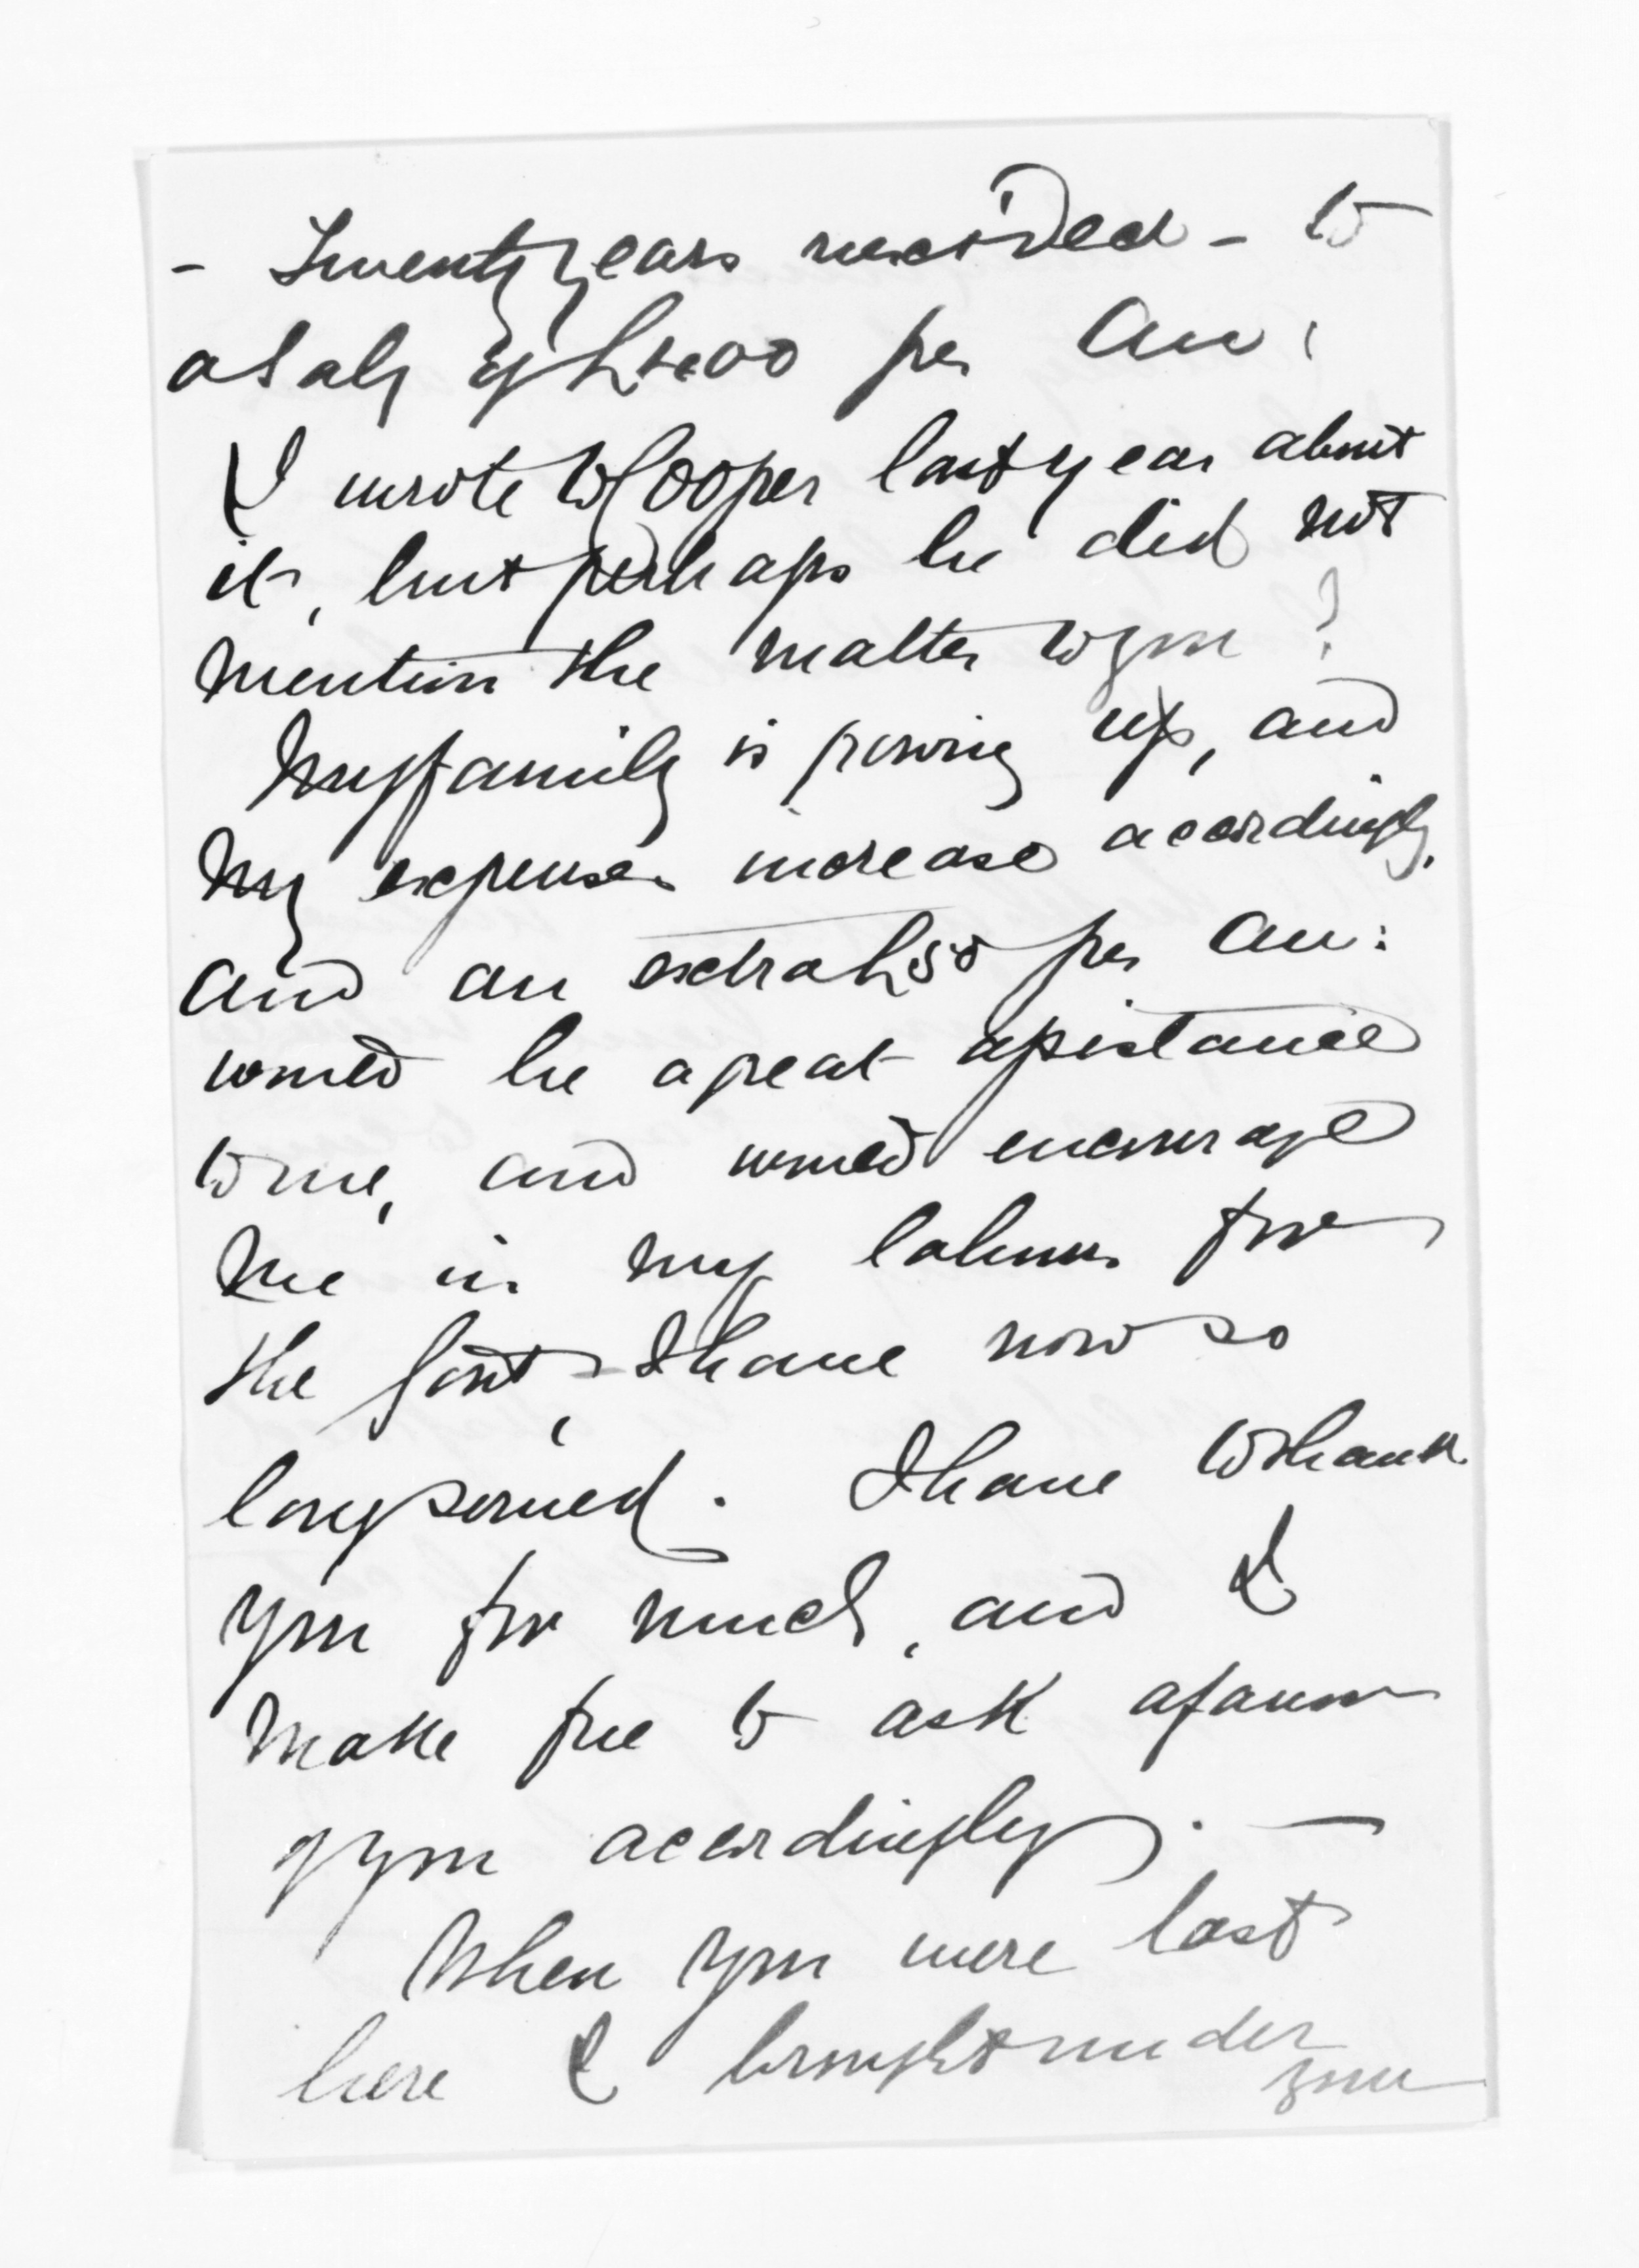 - Twenty years resided - to
a Saly of £400 per Ann:
I wrote to Cooper last year about
it, but perhaps he did not
mention the matter to you ?
My family is growing up, and
my expenses increase accordingly,
and an extra £50 per Ann:
would be a great assistance
to me, and would encourage
me in my labours for
the Govt, I have now so
long served. I have to thank
you for much, and I
make free to ask a favour
of you accordingly. —
When you were last
here I brought under
your